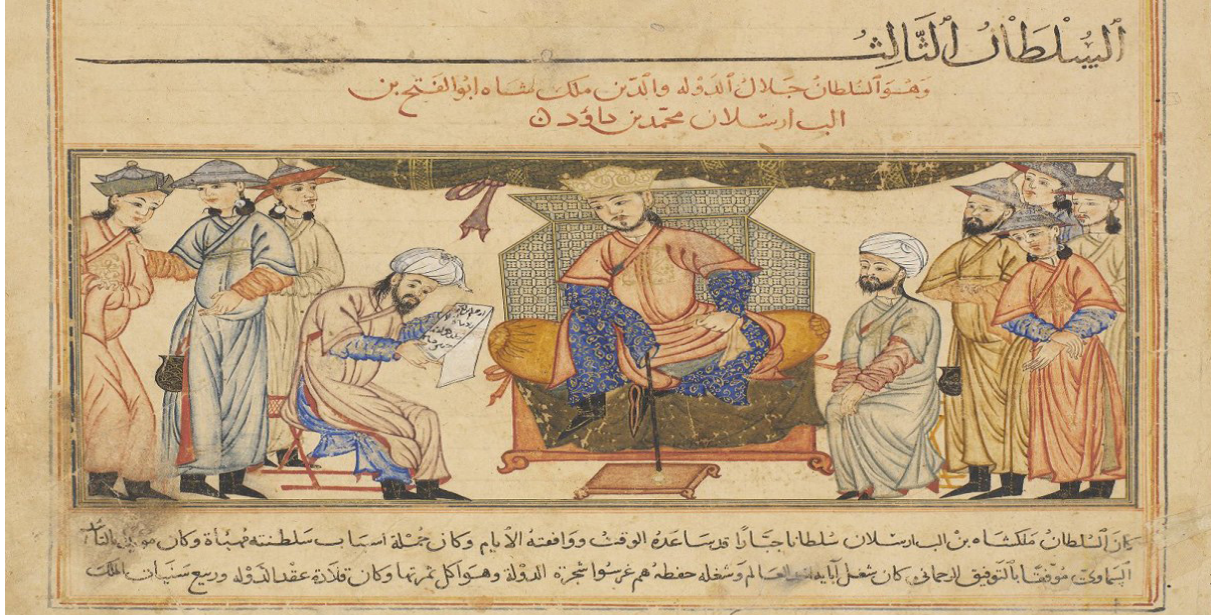 اَلسُّلْطَانُ اَلثَّالِثُ
وَهُوَ اَلسُّلطانُ جَلالُ اَلدَّوله واَلدّين ملك شاه ابوالفتح بن
الب ارسلان محمّد بن داؤد
كانَ اَلسُلطان مَلكشاه بن الب ارسلان سُلطانا جبّارًا قد ساعده الوقت ووافقته الأيام وكان جملة اسباب سَلطنته مُهيأة وكان
السماوي موفقا بالتوفيق الرحماني كان شغل آبايه العالم وشغله حفظه هم غرسوا شجرة الدولة وهو اكل ثمرتها وكان قلادة عقد الدوله وربيع الملك